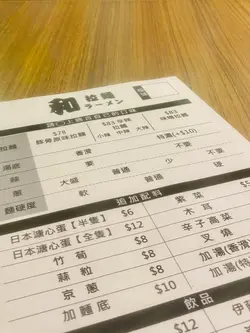 和 拉麵
ラーメン
$78
豚骨原味拉麵
$83 辛辣
拉麵
小辣 中辣 大辣
$83
味噌拉麵
拉麵
香濃
特濃(+$10)
湯底
要
不要
蔥
大蒜
普通
少
不要
麵硬度
軟
普通
硬
追加配料
日本溏心蛋【半隻】 $6 紫菜
日本溏心蛋【全隻】 $12 木耳
竹荀 $8 辛子高菜
蒜粒 $8 叉燒
京蔥 $8
加麵底 $10
$12
飲品